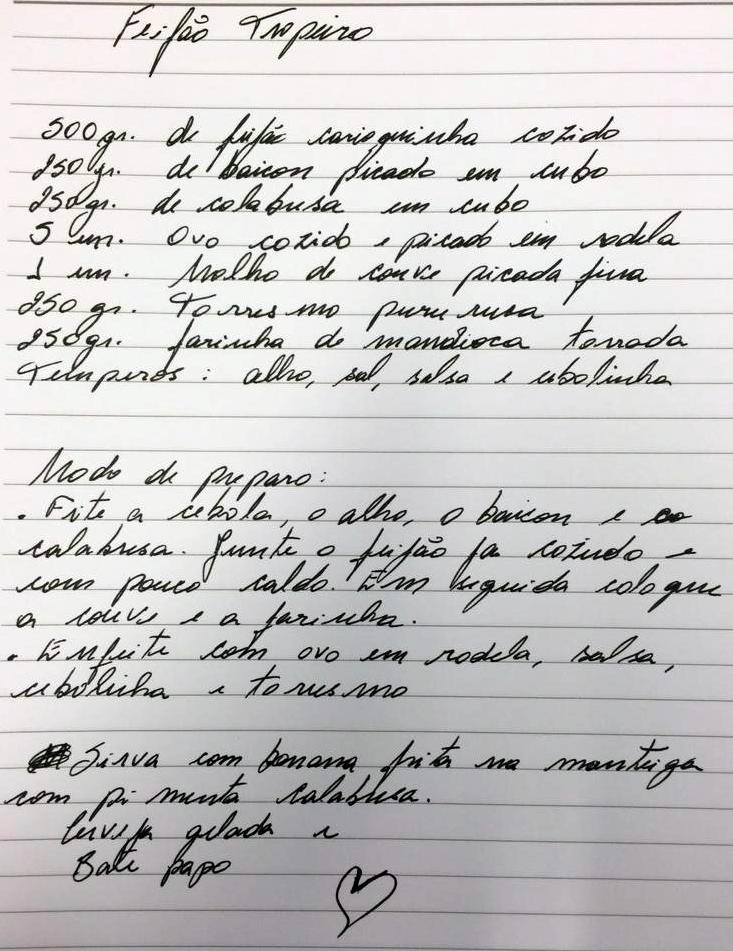 Feijão Tropeiro
500gr. de feijão carioquinha cozido
250gr. de baicon picado em cubo
250gr. de calabresa em cubo
5 un. Ovo cozido e picado em rodela
1 un. Molho de couve picada fina
250 gr. Torresmo pururuca
250gr. farinha de mandioca torrada
Temperos: alho, sal, salsa e cebolinha
Modo de preparo:
. Frite a cebola, o alho, o baicon e
calabresa. Junte o feijão ja cozido e
com pouco caldo. Em seguida coloque
a couve e a farinha.
. Enfeite com ovo em rodela, salsa,
cebolinha e torresmo
Sirva com banana frita na manteiga
com pimenta calabresa.
Cerveja gelada e
Bate papo